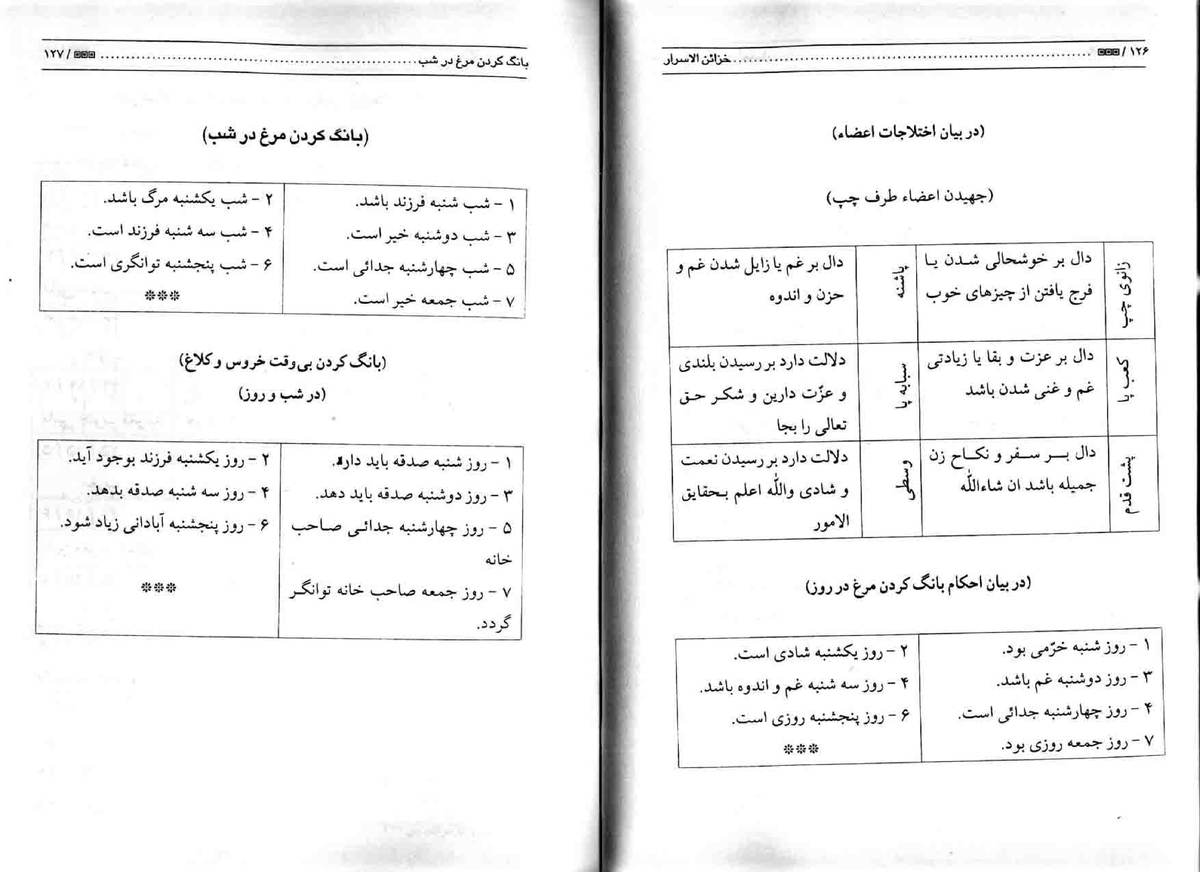 ۱۲۶ / خزائن الاسرار
(در بیان اختلاجات اعضاء)
(جهیدن اعضاء طرف چپ)
زانوی چپ
دال بر خوشحالی شدن یا
فرج یافتن از چیزهای خوب
پاشنه
دال بر غم یا زایل شدن غم و
حزن و اندوه
کعب پا
دال بر عزت و بقا یا زیادتی
غم و غنی شدن باشد
سبابه پا
دلالت دارد بر رسیدن بلندی
و عزّت دارین و شکر حق
تعالی را بجا
پشت قدم
دال بر سفر و نکاح زن
جمیله باشد ان شاءاللّه
وسطی
دلالت دارد بر رسیدن نعمت
و شادی واللّه اعلم بحقایق
الامور
(در بیان احکام بانگ کردن مرغ در روز)
۱ - روز شنبه خرّمی بود.
۲ - روز یکشنبه شادی است.
۳ - روز دوشنبه غم باشد.
۴ - روز سه شنبه غم و اندوه باشد.
۴ - روز چهارشنبه جدائی است.
۶ - روز پنجشنبه روزی است.
۷ - روز جمعه روزی بود.
***
بانگ کردن مرغ در شب / ۱۲۷
(بانگ کردن مرغ در شب)
۱ - شب شنبه فرزند باشد.
۲ - شب یکشنبه مرگ باشد.
۳ - شب دوشنبه خیر است.
۴ - شب سه شنبه فرزند است.
۵ - شب چهارشنبه جدائی است.
۶ - شب پنجشنبه توانگری است.
۷ - شب جمعه خیر است.
***
(بانگ کردن بی‌وقت خروس و کلاغ)
(در شب و روز)
۱ - روز شنبه صدقه باید داد.
۲ - روز یکشنبه فرزند بوجود آید.
۳ - روز دوشنبه صدقه باید دهد.
۴ - روز سه شنبه صدقه بدهد.
۵ - روز چهارشنبه جدائی صاحب
خانه
۶ - روز پنجشنبه آبادانی زیاد شود.
۷ - روز جمعه صاحب خانه توانگر
گردد.
***